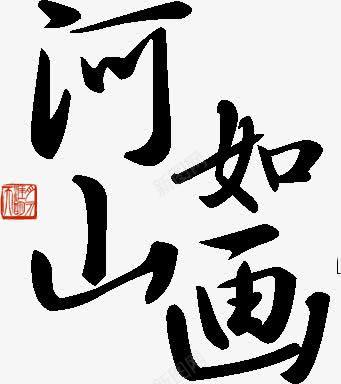 河山
如画